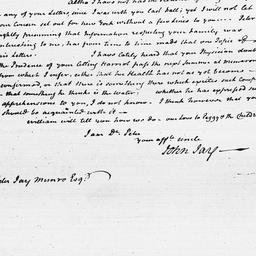 Altho I have not had the
of any Letter, since I was with you last Fall; yet I will not let
your Cousin set out for New York without a few lines to you
rightly presuming that Information respecting your Family was
interesting to me, has from time to time made that one Topic of
his Letters.
I have lately heard that your Physician doubts
the Prudence of your letting Harriot pass the next Summer at Mamaron
from which I infer, either that her Health has not as yet become
confirmed, or that there is something there which excites such
and that something he thinks is the water. whether he has expressed such
apprehensions to you, I do not know. I think however that you
should be acquainted with it —
William will tell you how we do - our love to Peggy & the Children
I am Dr. Peter
your affte. uncle
John Jay
Peter Jay Munro Esqr.